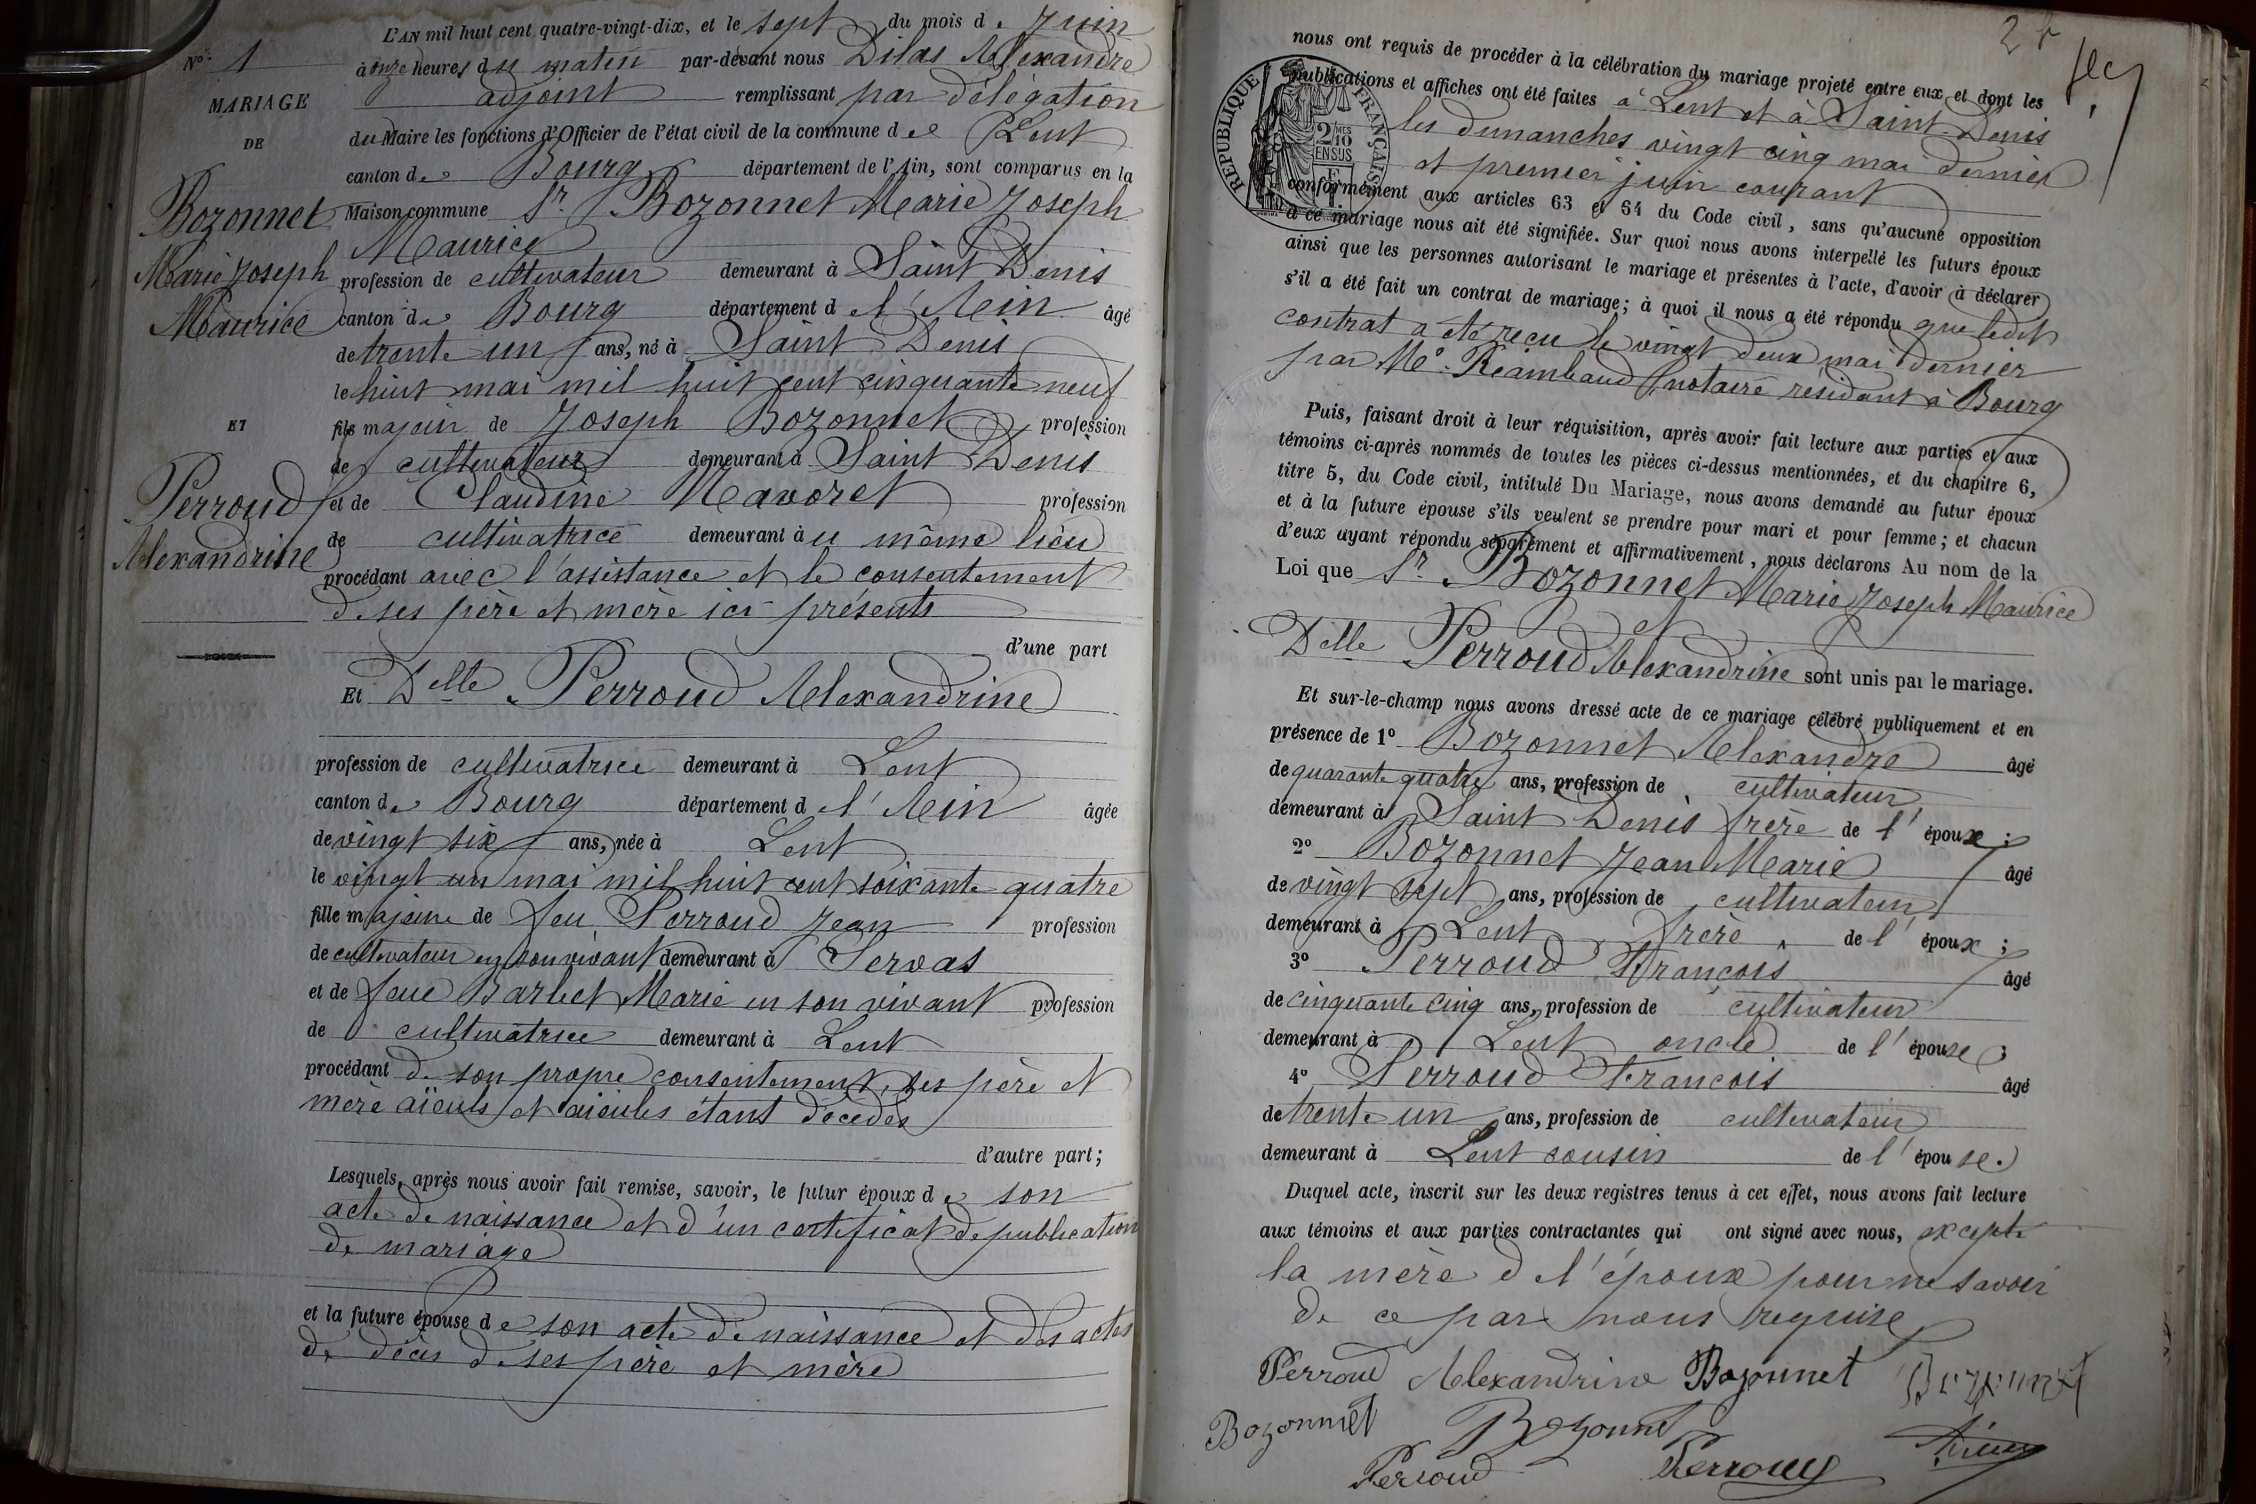 L'AN mil huit cent quatre-vingt-dix, et le sept du mois de Juin
à onze heures du matin par-devant nous Dilas Alexandre
adjoint remplissant par délégation
du Maire les fonctions d'Officier de l'état civil de la commune de Lent
canton de Bourg département de l'Ain, sont comparus en la
Maison commune Sr. Bozonnet Marie Joseph
Maurice
profession de cultivateur demeurant à Saint Denis
canton de Bourg département de l'Ain âgé
de trente un ans, né à Saint Denis
le huit mai mil huit cent cinquante neuf
fils majeur de Joseph Bozonnet profession
de cultivateur demeurant à Saint Denis
et de Claudine Navoret profession
de cultivatrice demeurant au même lieu
procédant avec l'assistance et le consentement
de ses père et mère ici présents
d'une part
Et Delle Perroud Alexandrine
profession de cultivatrice demeurant à Lent
canton de Bourg département de l'Ain âgée
de vingt six ans, née à Lent
le vingt un mai mil huit cent soixante quatre
fille majeure de feu Perroud Jean profession
de cultivateur en son vivant demeurant à Servas
et de feue Barbet Marie en son vivant profession
de cultivatrice demeurant à Lent
procédant de son propre consentement, ses père et
mère aïeuls et aïeules étant décédés
d'autre part;
Lesquels, après nous avoir fait remise, savoir, le futur époux de son
acte de naissance et d'un certificat de publication
de mariage
et la future épouse de son acte de naissance et des actes
de décès de ses père et mère
No. 1
MARIAGE
DE
Bozonnet
Marie Joseph
Maurice
ET
Perroud
Alexandrine
2
nous ont requis de procéder à la célébration du mariage projeté entre eux et dont les
publications et affiches ont été faites à Lent et à Saint Denis
les dimanches vingt cinq mai dernier
et premier juin courant
conformément aux articles 63 et 64 du Code civil, sans qu'aucune opposition
à ce mariage nous ait été signifiée. Sur quoi nous avons interpellé les futurs époux
ainsi que les personnes autorisant le mariage et présentes à l'acte, d'avoir à déclarer
s'il a été fait un contrat de mariage; à quoi il nous a été répondu que ledit
contrat a été reçu le vingt deux mai dernier
par Me. Raimbaud notaire résidant à Bourg
RÉPUBLIQUE FRANÇAISE
2/10 MES
EN SUS
Puis, faisant droit à leur réquisition, après avoir fait lecture aux parties et aux
témoins ci-après nommés de toutes les pièces ci-dessus mentionnées, et du chapitre 6,
titre 5, du Code civil, intitulé Du Mariage, nous avons demandé au futur époux
et à la future épouse s'ils veulent se prendre pour mari et pour femme; et chacun
d'eux ayant répondu séparément et affirmativement, nous déclarons Au nom de la
Loi que Sr. Bozonnet Marie Joseph Maurice
et
Delle Perroud Alexandrine sont unis par le mariage.
Et sur-le-champ nous avons dressé acte de ce mariage célébré publiquement et en
présence de 1° Bozonnet Alexandre âgé
de quarante quatre ans, profession de cultivateur
demeurant à Saint Denis frère de l'époux;
2° Bozonnet Jean Marie âgé
de vingt sept ans, profession de cultivateur
demeurant à Lent frère de l'époux;
3° Perroud François âgé
de cinquante cinq ans, profession de cultivateur
demeurant à Lent oncle de l'épouse;
4° Perroud François âgé
de trente un ans, profession de cultivateur
demeurant à Lent cousin de l'épouse.
Duquel acte, inscrit sur les deux registres tenus à cet effet, nous avons fait lecture
aux témoins et aux parties contractantes qui ont signé avec nous, excepté
la mère de l'époux pour ne savoir
de ce par nous requise
Perroud Alexandrine Bozonnet Bozonnet
Bozonnet Bozonnet
Perroud Perroud